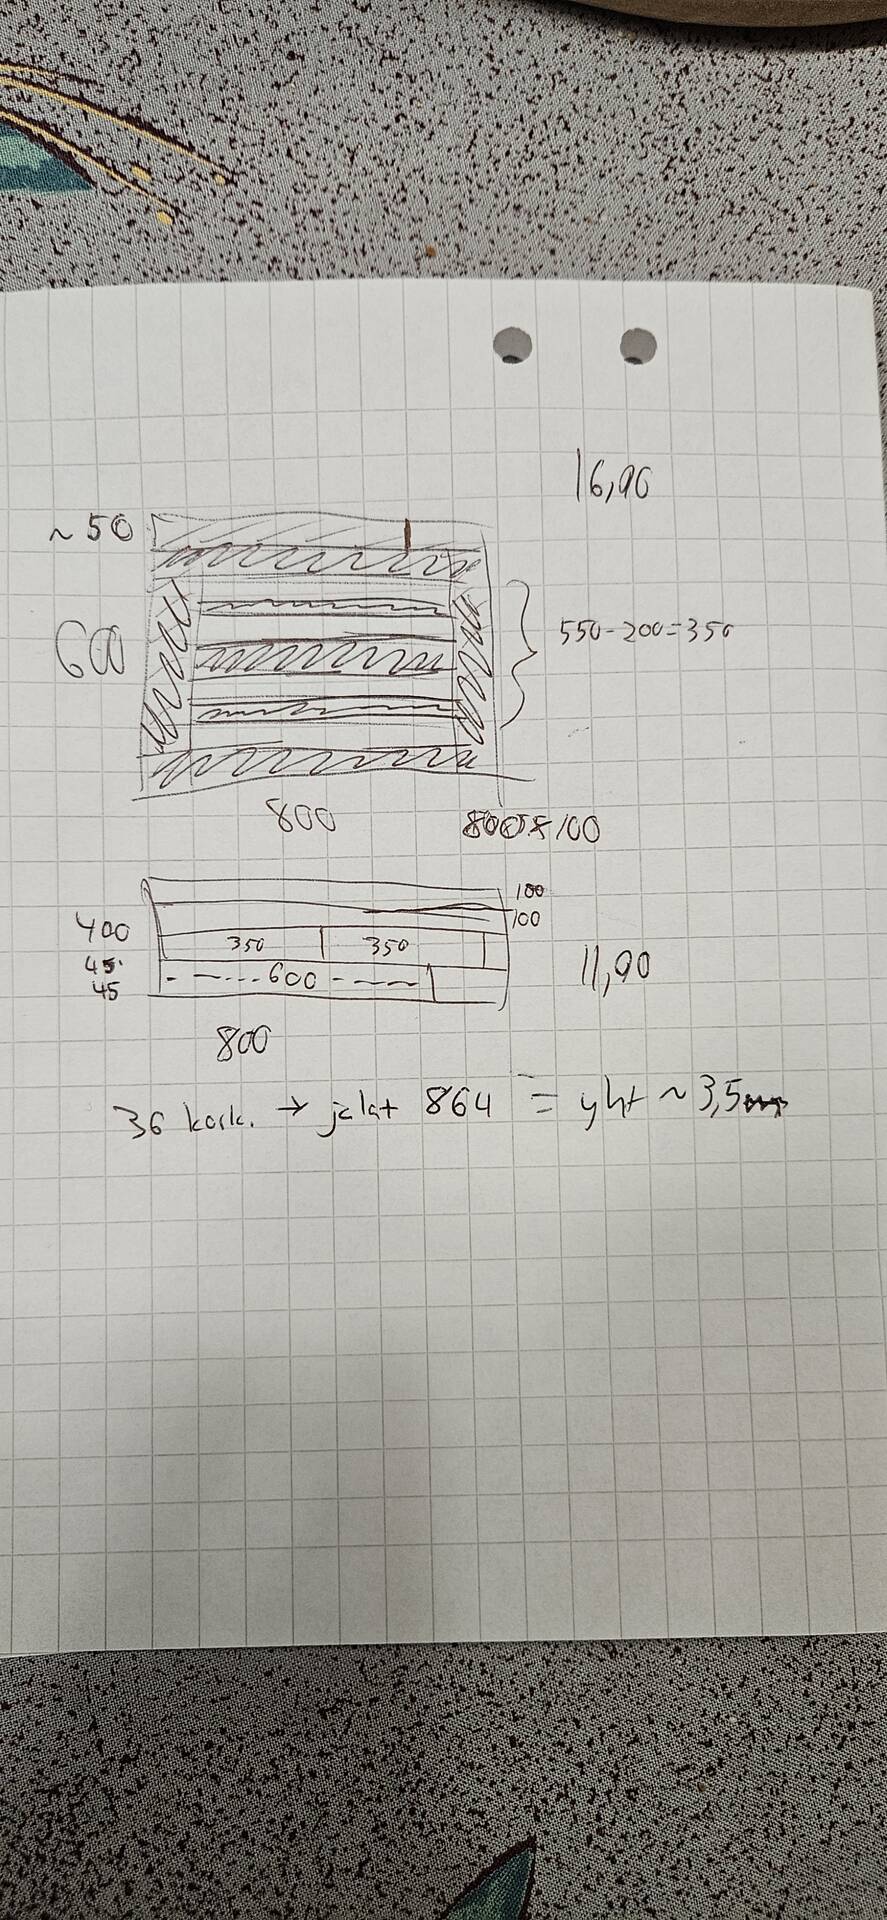 16,90
~50
600
550-200=350
800
100
100
400
100
350 350
45
600
45
11,90
800
36 kork. → jalat 864 = yht ~3,5